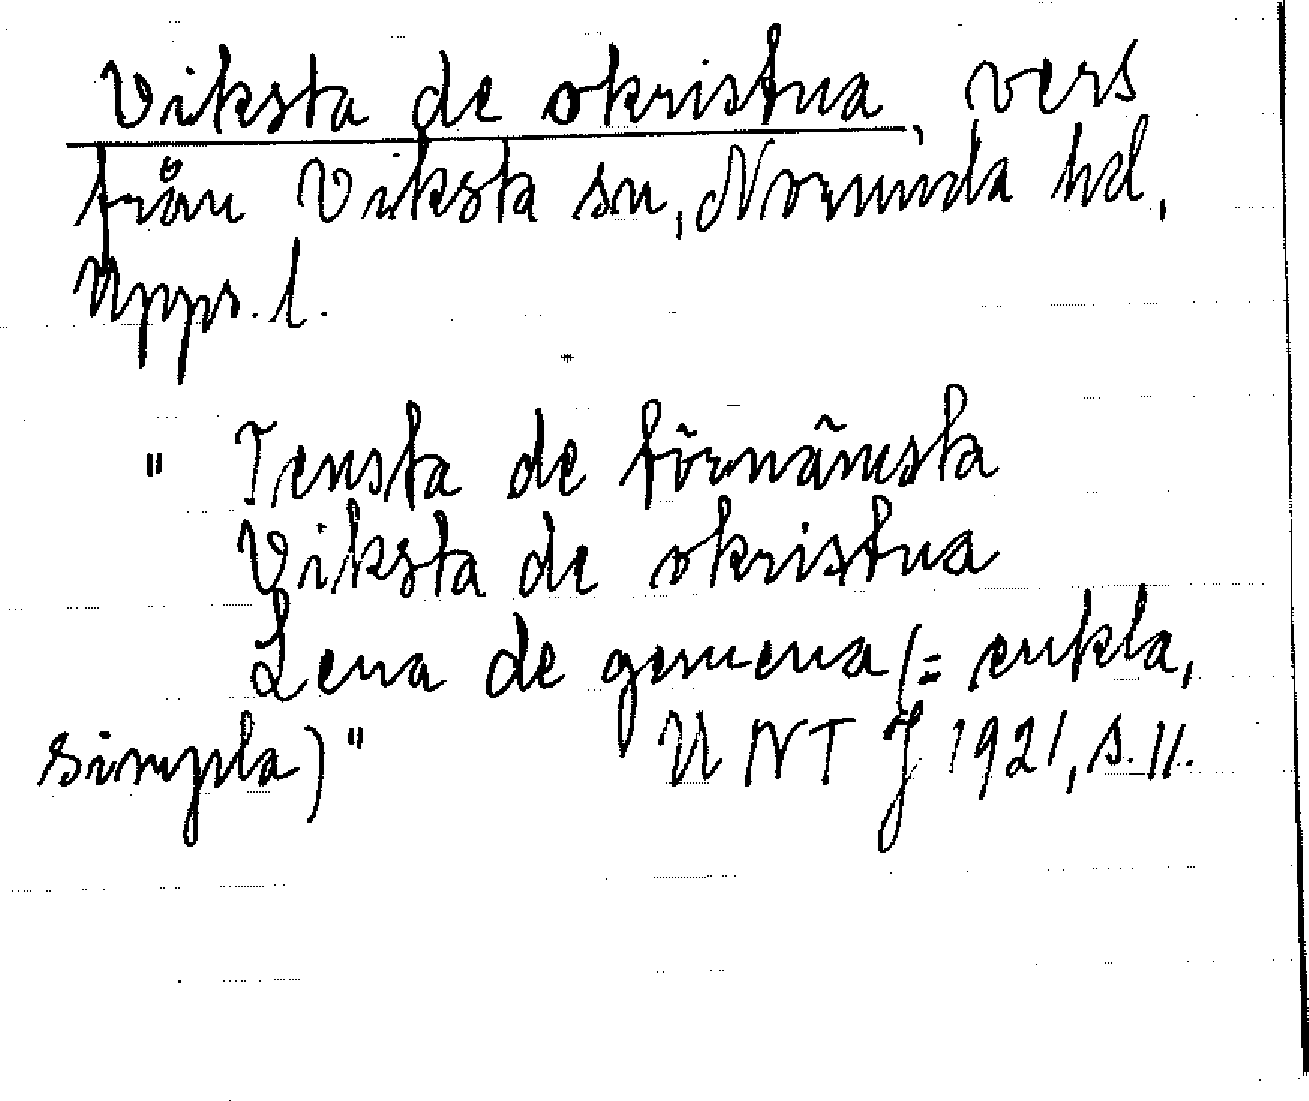 Viksta de okristna, vers
från Viksta sn, Norunda hd,
Upps. l.
" Tensta de förnämsta
Viksta de okristna
Lena de gemena (= enkla,
simpla)" UNT J 1921, s. 11.